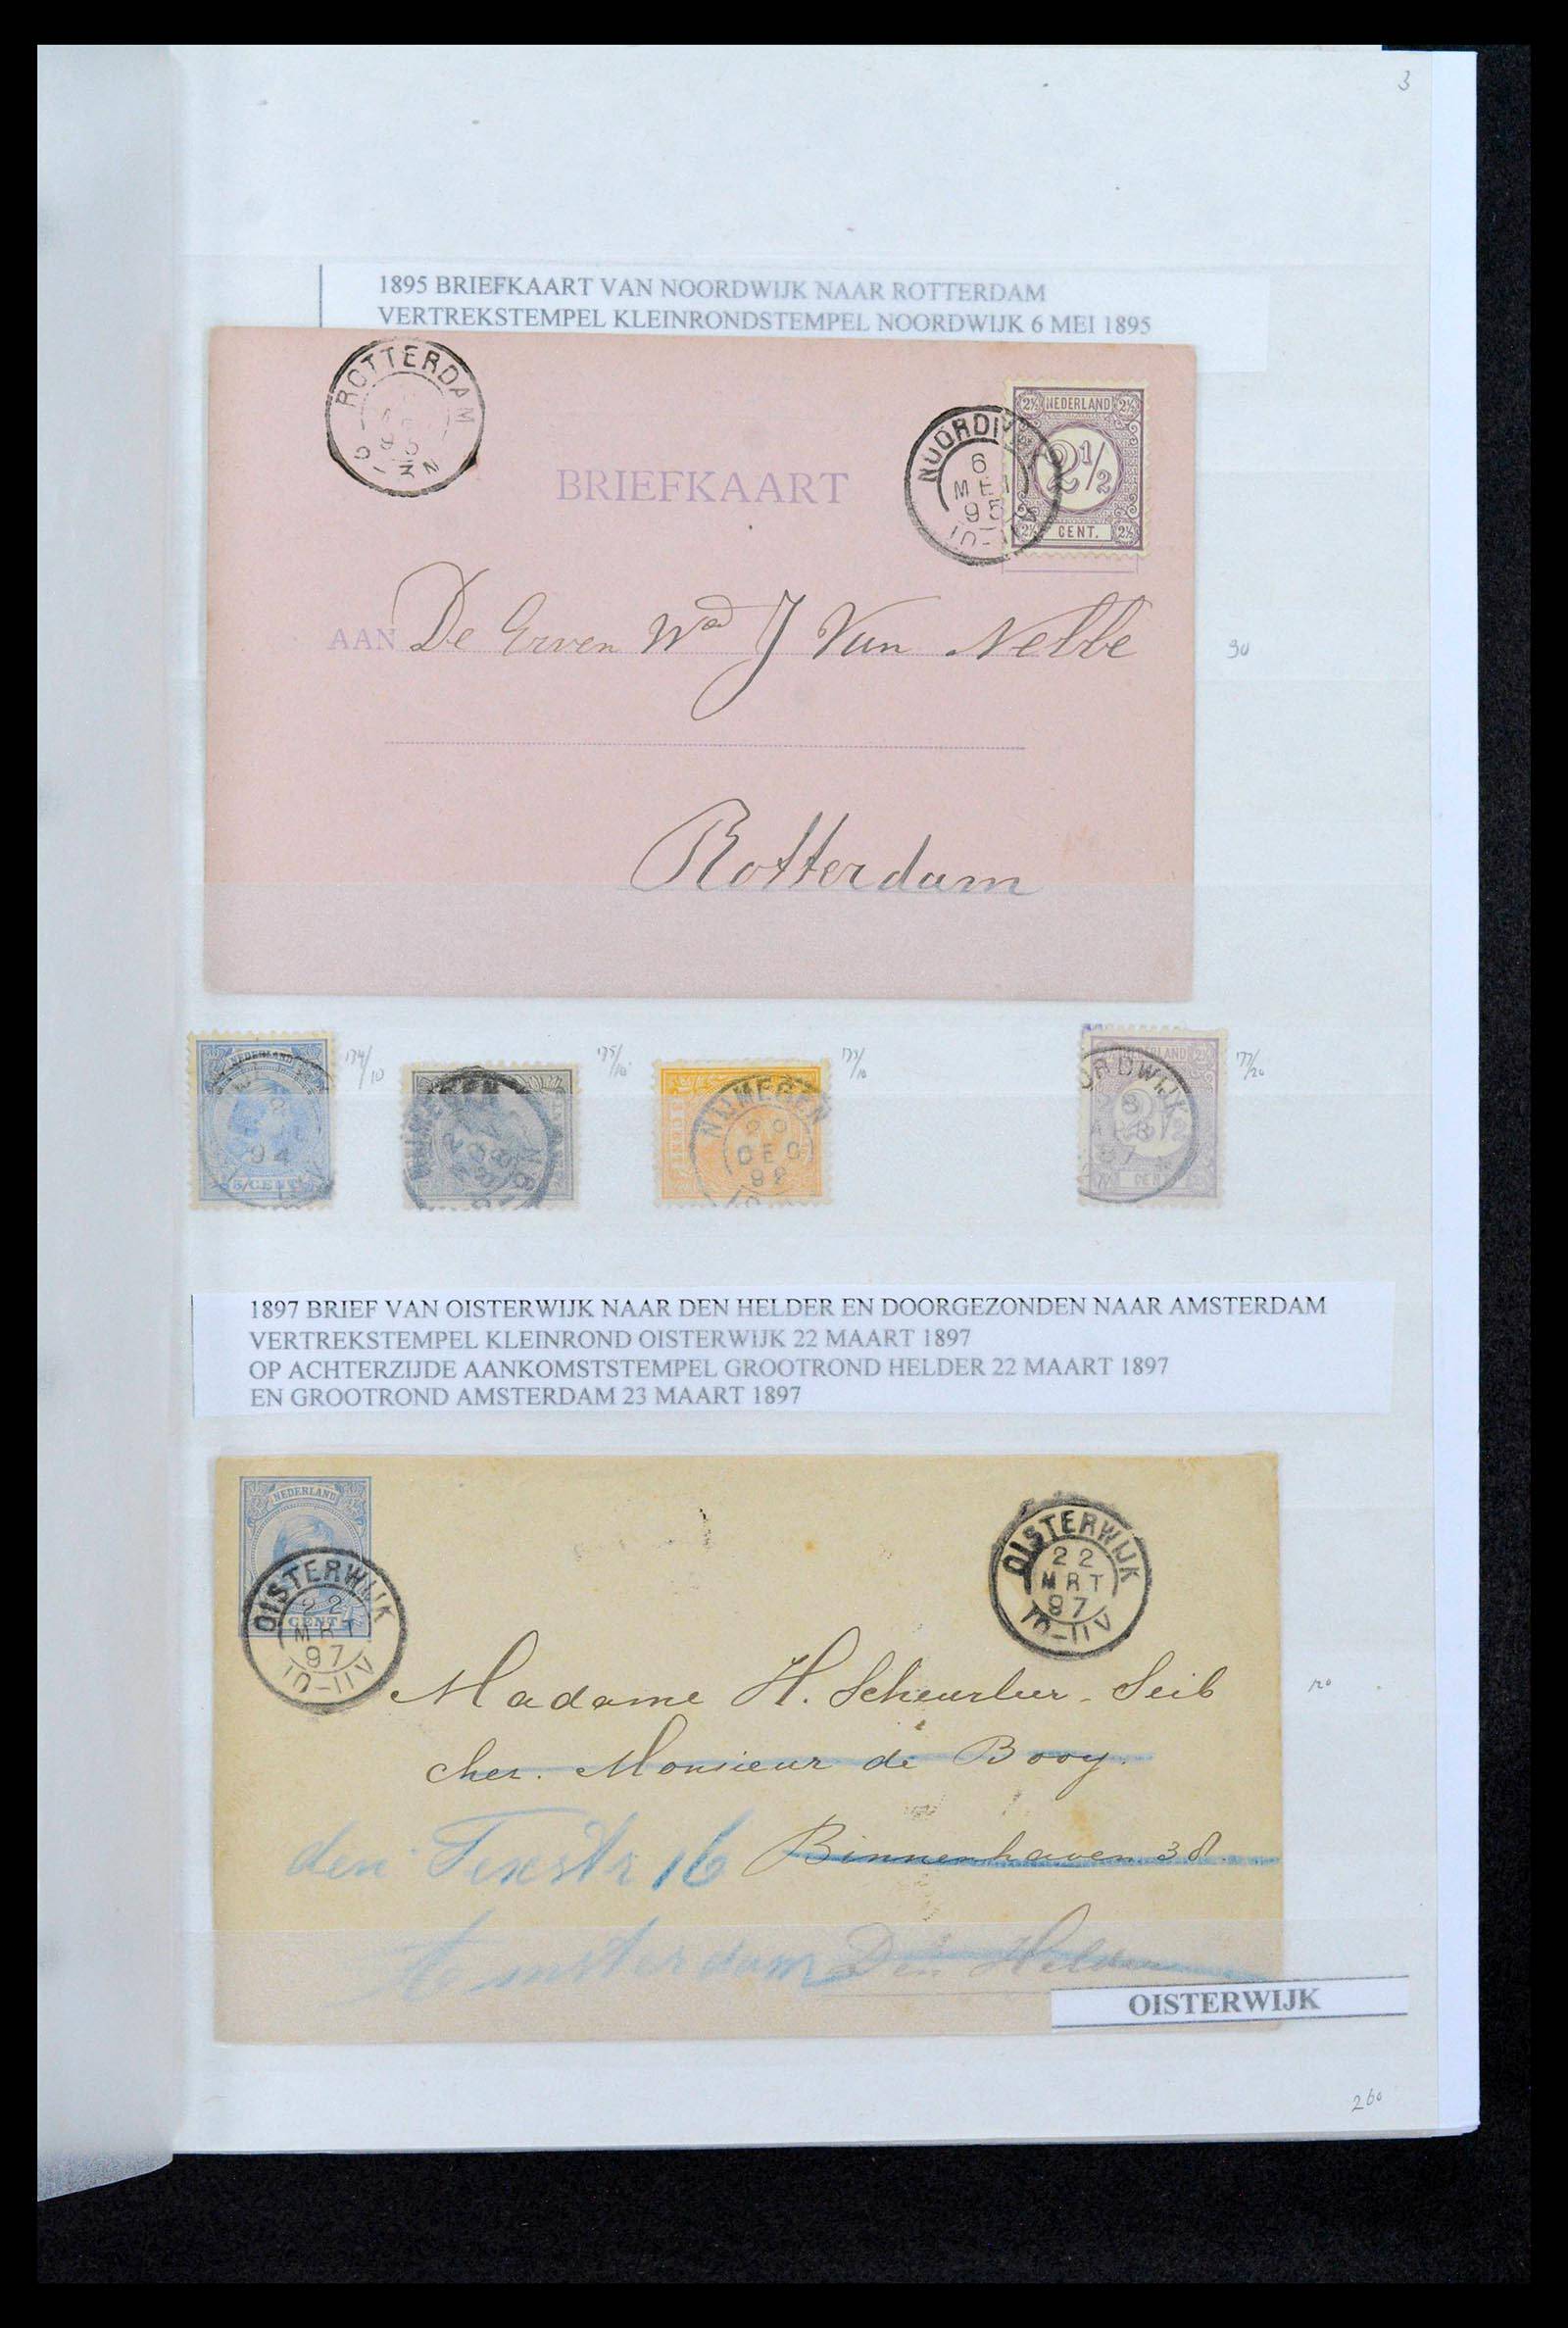 3
1895 BRIEFKAART VAN NOORDWIJK NAAR ROTTERDAM
VERTREKSTEMPEL KLEINRONDSTEMPEL NOORDWIJK 6 MEI 1895
ROTTERDAM
NOORDWIJK
6
MEI
95
10-11V
NEDERLAND
2½
CENT.
BRIEFKAART
AAN De Erven Wed J Van Nelle
90
Rotterdam
NEDERLAND
94
5 CENT
174/10
NIJMEGEN
175/10
NIJMEGEN
DEC
177/10
NEDERLAND
ORDWIJK
97
177/20
1897 BRIEF VAN OISTERWIJK NAAR DEN HELDER EN DOORGEZONDEN NAAR AMSTERDAM
VERTREKSTEMPEL KLEINROND OISTERWIJK 22 MAART 1897
OP ACHTERZIJDE AANKOMSTSTEMPEL GROOTROND HELDER 22 MAART 1897
EN GROOTROND AMSTERDAM 23 MAART 1897
NEDERLAND
CENT
OISTERWIJK
22
MRT
97
10-11V
OISTERWIJK
22
MRT
97
10-11V
Madame H. Scheurleer-Seib
chez Monsieur de Booy.
den Texstr 16 Binnenhaven 38.
Amsterdam Den Helder
OISTERWIJK
260